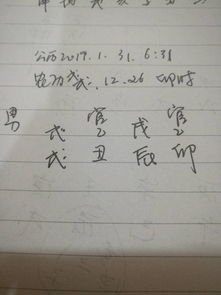 公历2019.1.31.6:31
农历戊戌:12.26 卯时
官 官
男 戊 乙 戊 乙
戌 丑 辰 卯